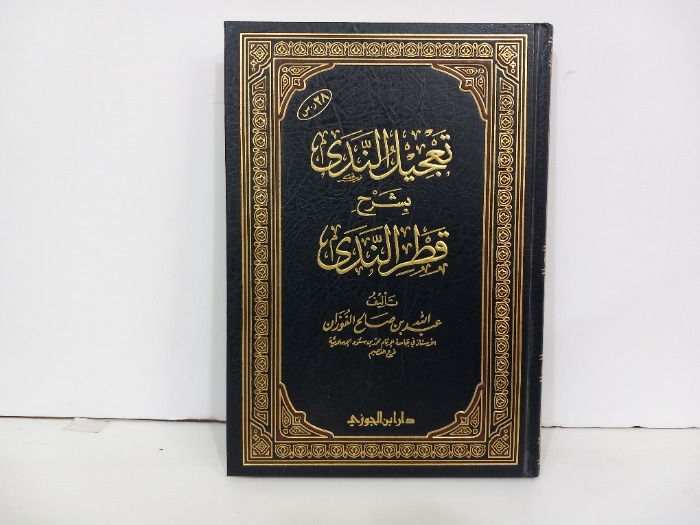 ٢٨ ر.س
تعجيل الندى
بشرح
قطر الندى
تأليف
عبد الله بن صالح الفوزان
الأستاذ في جامعة الإمام محمد بن سعود الإسلامية
فرع القصيم
دار ابن الجوزي